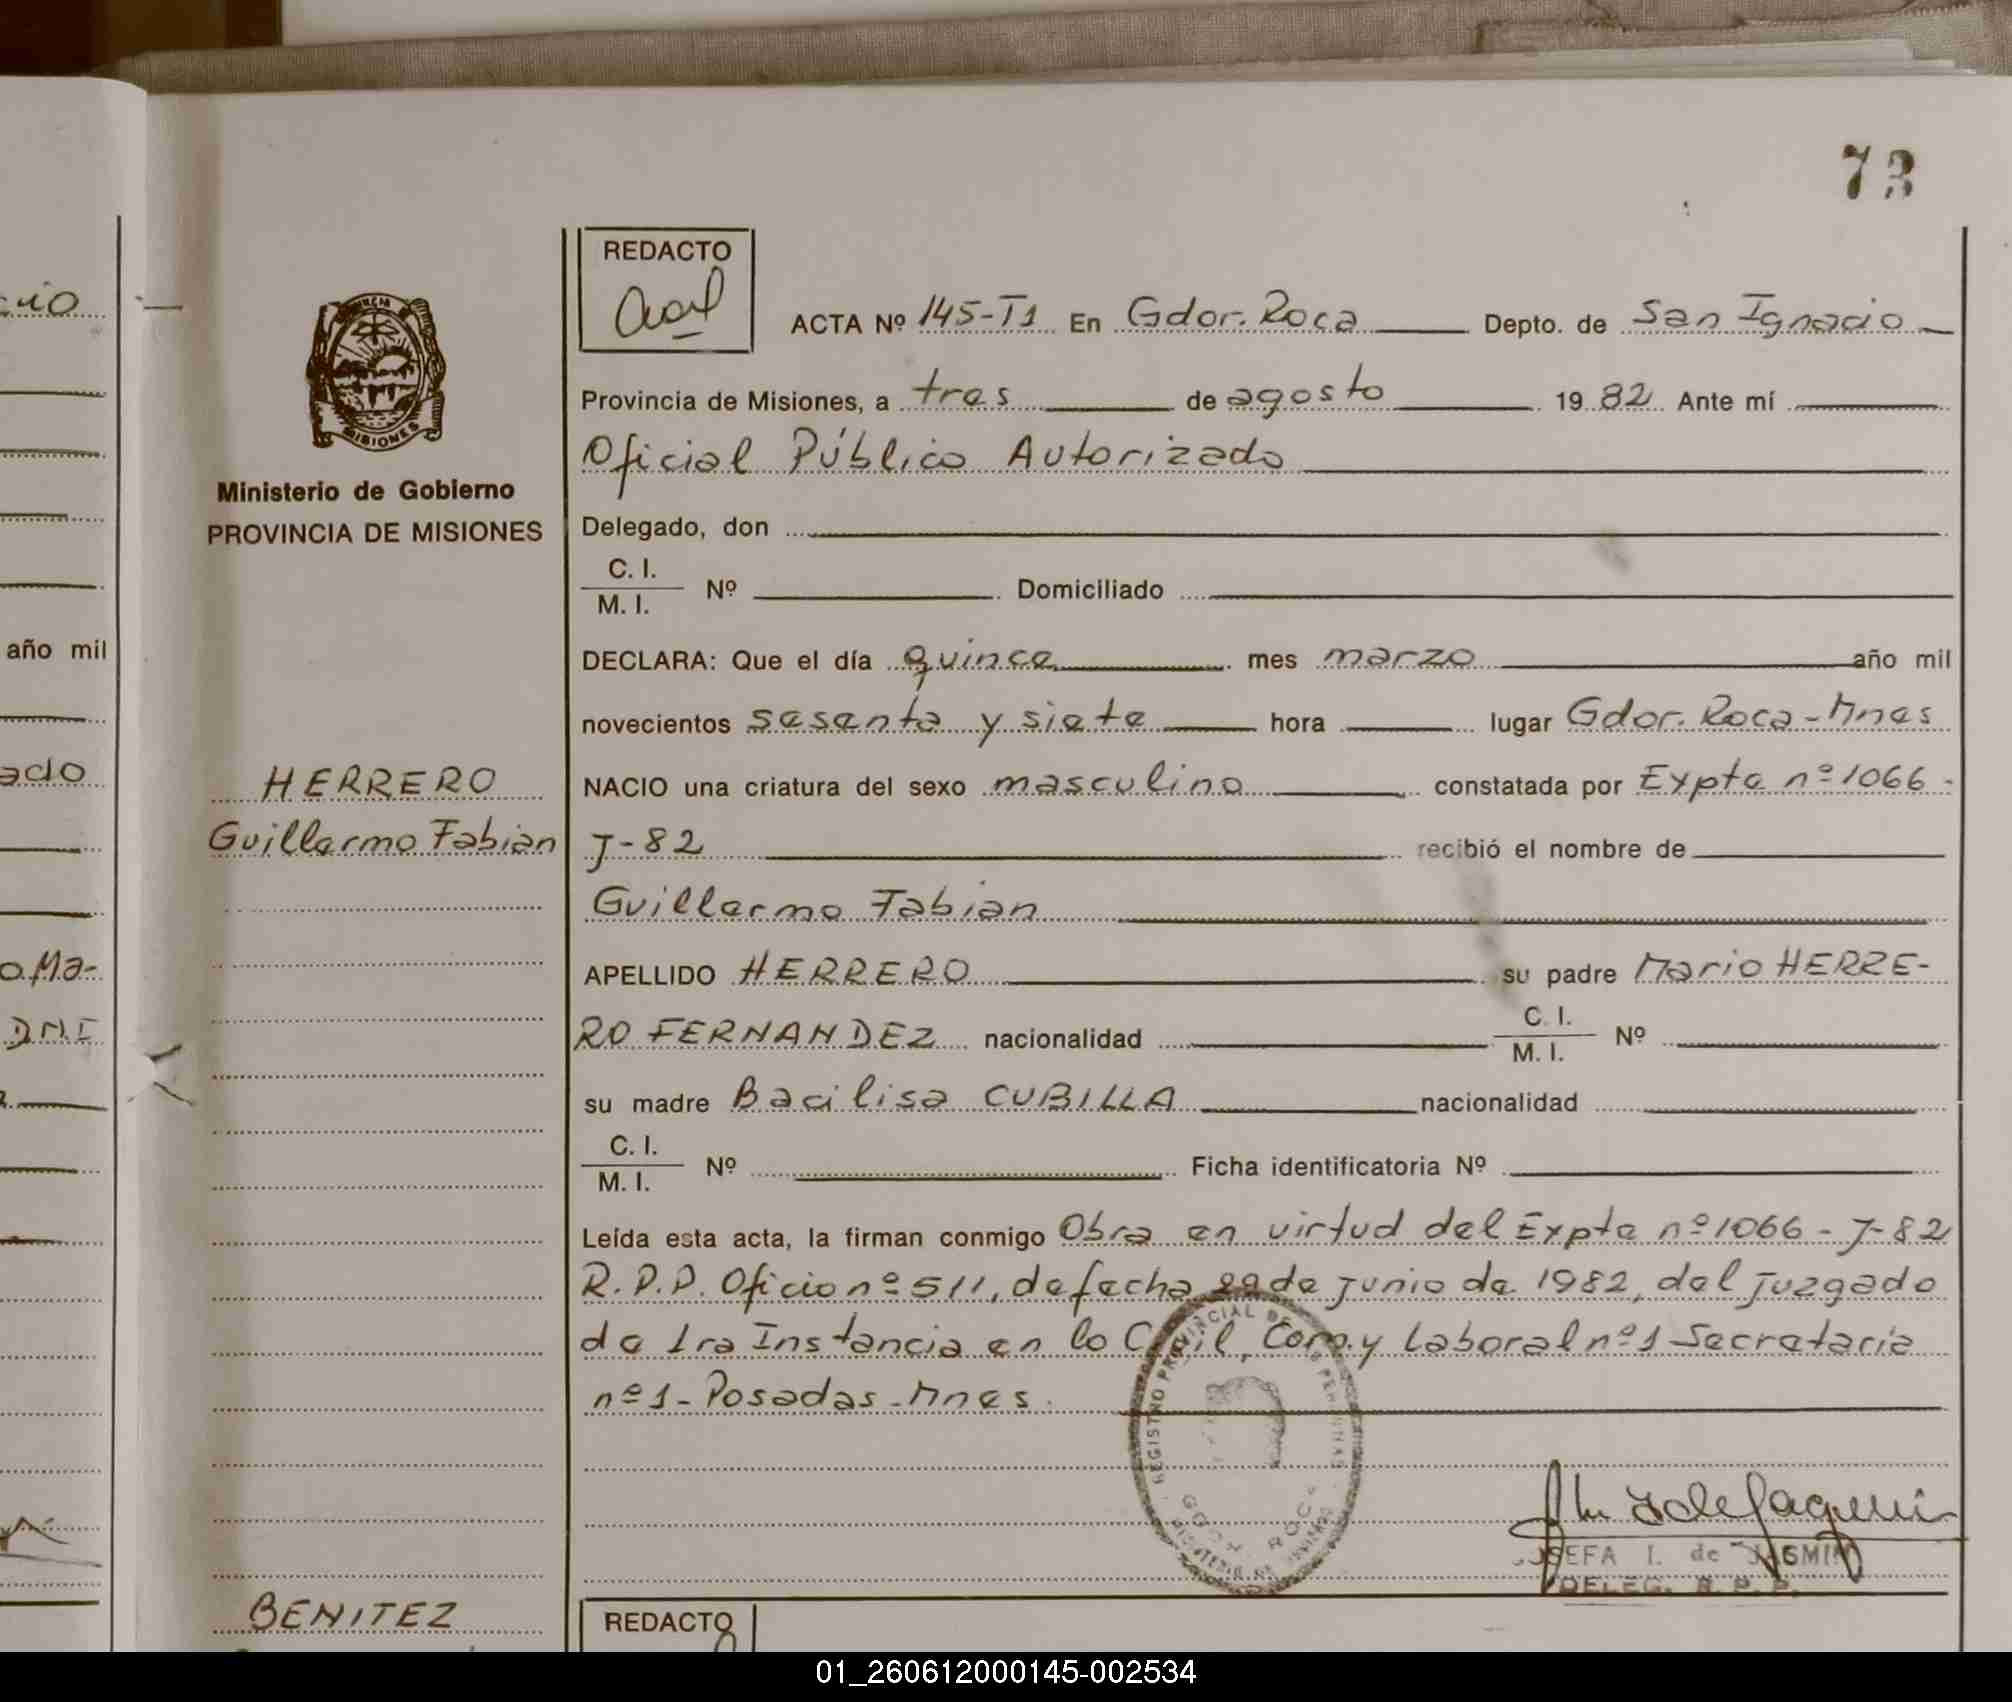 73
cio
año mil
ado
o. Ma-
DNI
PROVINCIA
MISIONES
Ministerio de Gobierno
PROVINCIA DE MISIONES
HERRERO
Guillermo Fabian
BENITEZ
REDACTO
ACTA Nº 145-T1 En Gdor. Roca Depto. de San Ignacio
Provincia de Misiones, a tres de agosto 19 82 Ante mí
Oficial Público Autorizado
Delegado, don
C. I.
M. I. Nº Domiciliado
DECLARA: Que el día quince mes marzo año mil
novecientos sesenta y siete hora lugar Gdor. Roca-Mnes
NACIO una criatura del sexo masculino constatada por Expte nº 1066-
J-82 recibió el nombre de
Guillermo Fabian
APELLIDO HERRERO su padre Mario HERRE-
RO FERNANDEZ nacionalidad C. I.
M. I. Nº
su madre Bacilisa CUBILLA nacionalidad
C. I.
M. I. Nº Ficha identificatoria Nº
Leída esta acta, la firman conmigo Obra en virtud del Expte nº 1066-J-82
R.P.P. Oficio nº 511, de fecha de junio de 1982, del juzgado
de 1ra Instancia en lo Civil, Com. y Laboral nº 1 Secretaria
nº 1-Posadas-Mnes.
REGISTRO PROVINCIAL DE LAS PERSONAS
GDOR. ROCA
JOSEFA I. de JASMIN
DELEG. R. P. P.
REDACTO
01_260612000145-002534